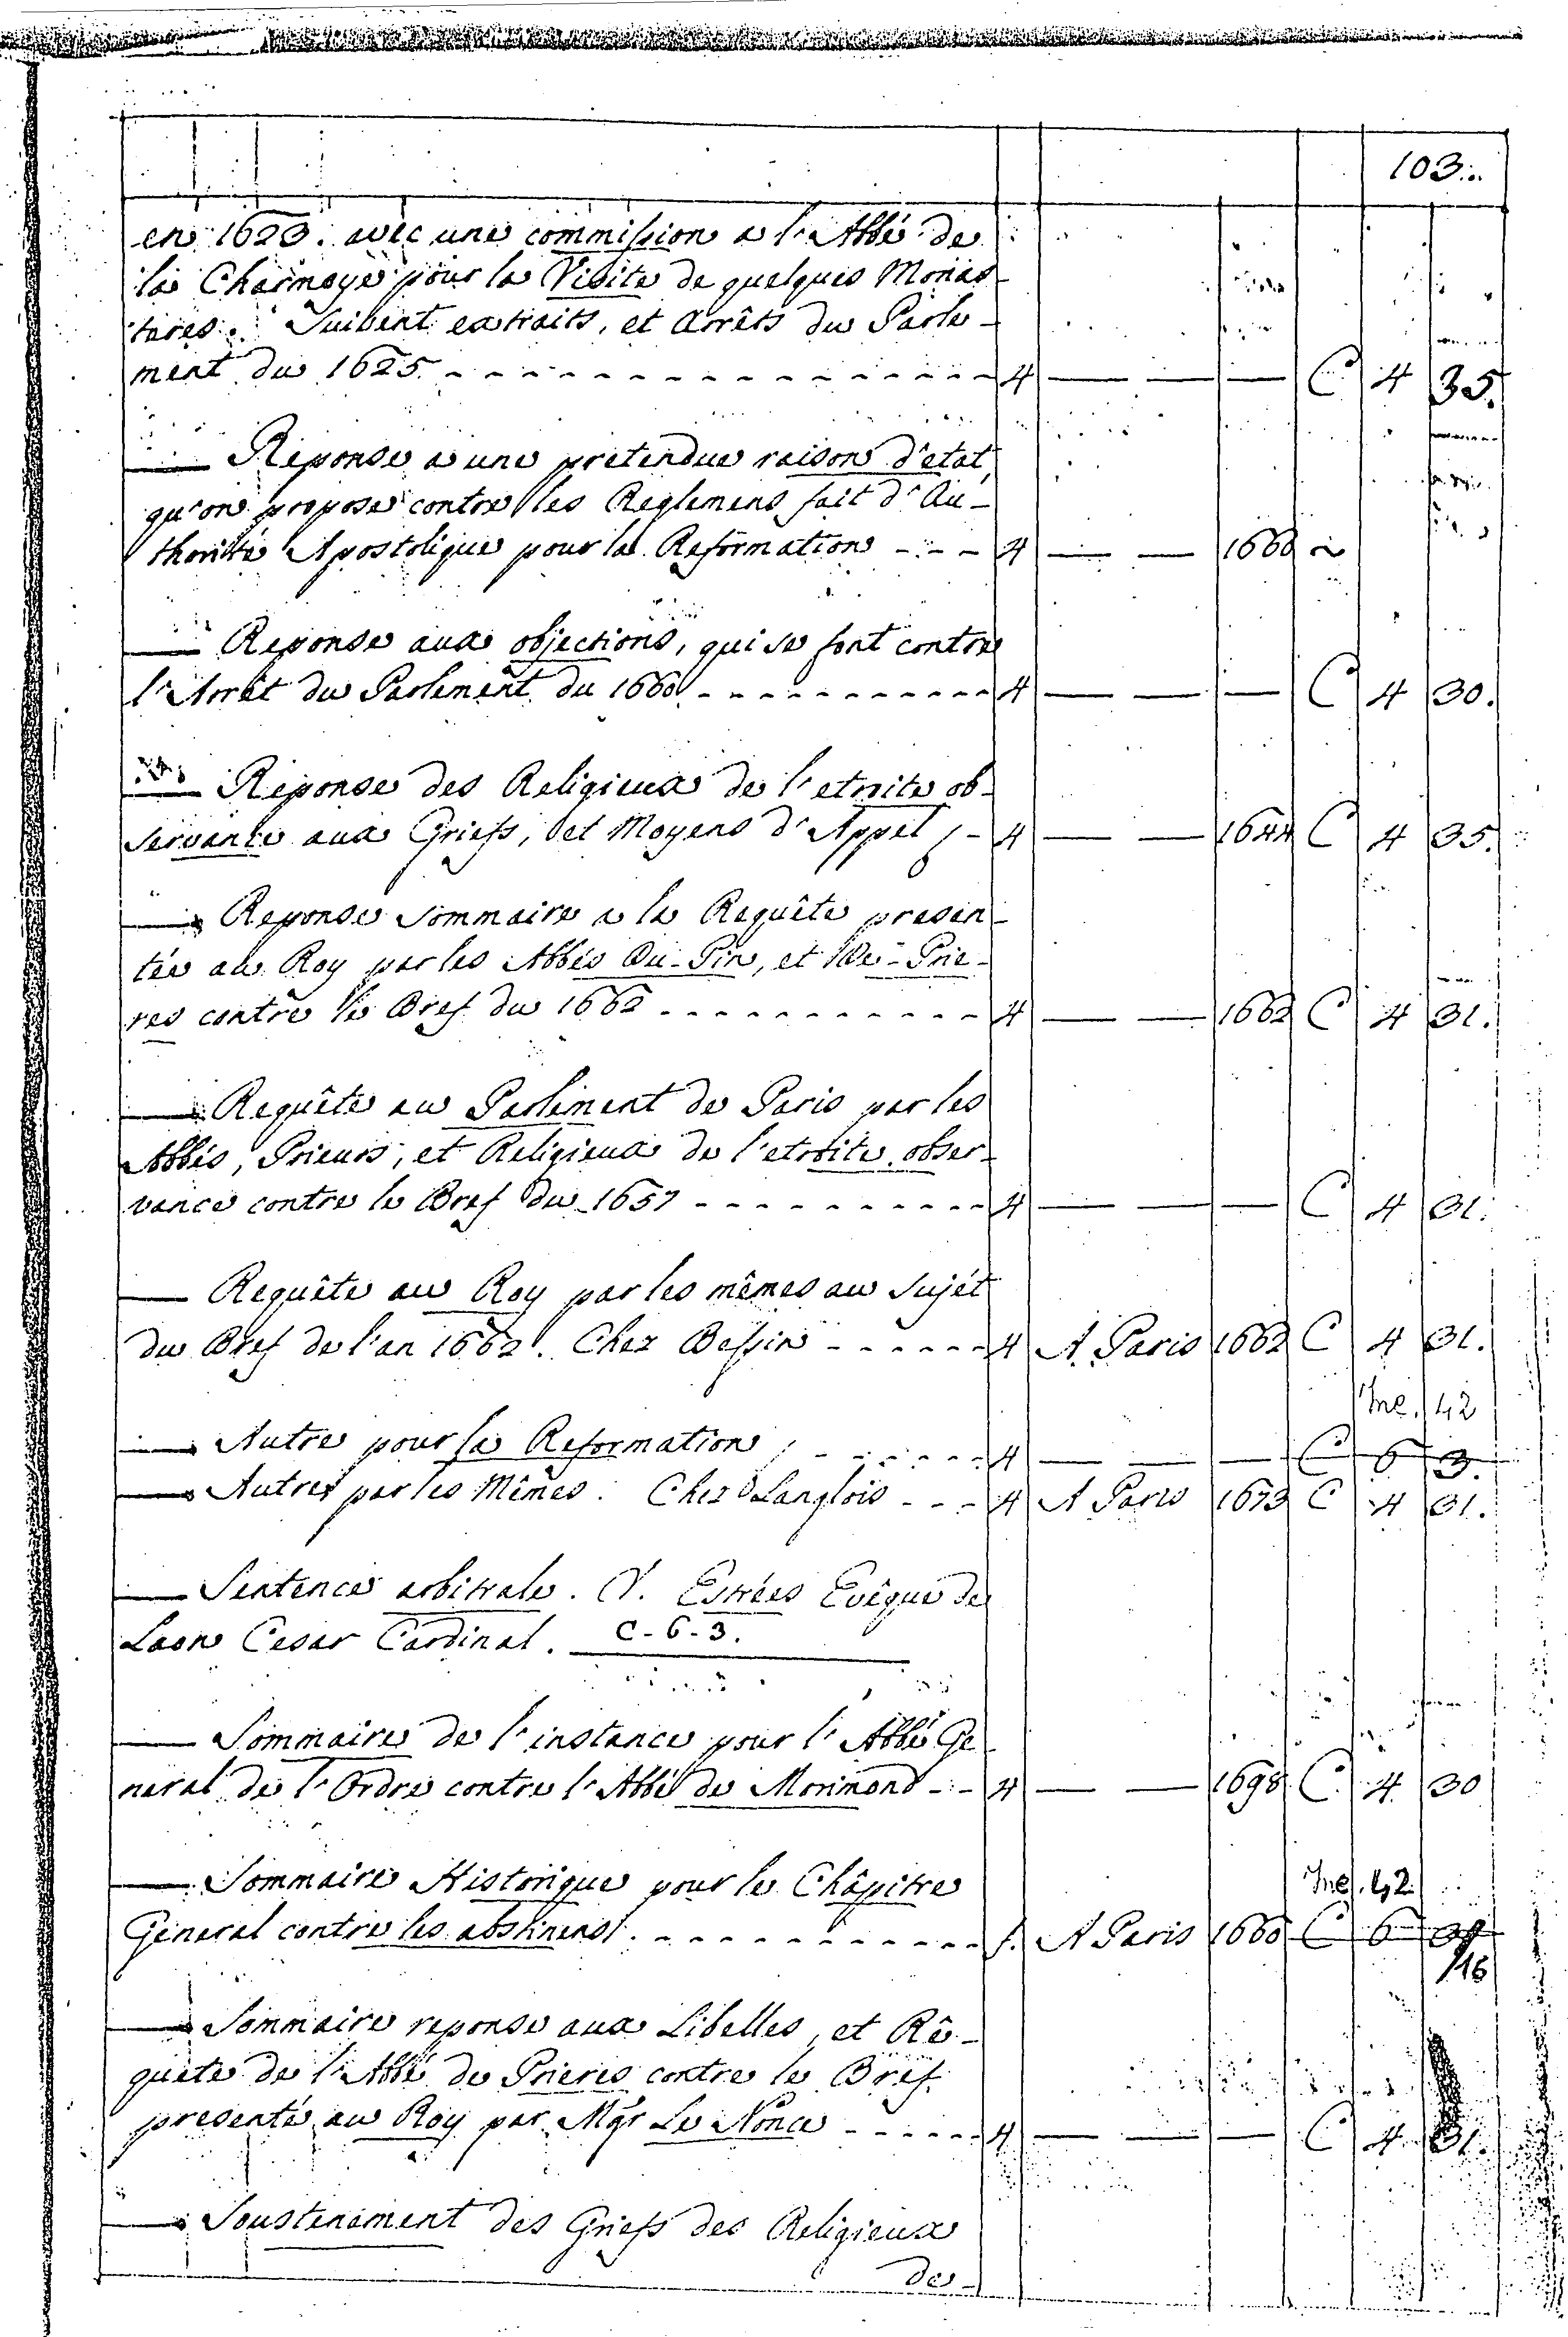 103.
en 1623. avec une commission a l'Abbé de
la Charmoye pour la Visite de quelques Monas-
teres. Suivent extraits, et Arrêts du Parle-
ment du 1625. - - - 4 — — — C 4 35.
— Reponse a une pretendue raison d'etat,
qu'on propose contre les Reglemens fait d'Au-
thorité Apostolique pour la Reformation - - - 4 — — 1660 ~
— Reponse aux objections, qui se font contre
l'Arrêt du Parlement du 1660 - - - 4 — — — C 4 30.
— Reponse des Religieux de l'etroite ob-
servance aux Griefs, et Moyens d'Appel - 4 — — 1644 C 4 35.
— Reponse sommaire a la Requête presen-
tée au Roy par les Abbés Du-Pin, et De-Prie-
res contre le Bref du 1662 - - - 4 — — 1662 C 4 31.
— Requête au Parlement de Paris par les
Abbés, Prieurs, et Religieux de l'etroite obser-
vance contre le Bref du 1657 - - - 4 — — — C 4 31.
— Requête au Roy par les mêmes au sujét
du Bref de l'an 1662. Chez Bessin - - - 4 A Paris 1662 C 4 31.
Inc. 42
— Autre pour la Reformation - - - 4 — — — C 6 3.
— Autres par les Mêmes. Chez Langlois - - - 4 A Paris 1673 C 4 31.
— Sentence arbitrale. V. Estrées Evêque de
Laon Cesar Cardinal. C-6-3.
— Sommaire de l'instance pour l'Abbé Ge-
neral de l'Ordre contre l'Abbé de Morimond - - 4 — — 1698 C 4 30
Inc. 42
— Sommaire Historique pour le Châpitre
General contre les abstinens. - - - f. A Paris 1660 C 6
/16
— Sommaire reponse aux Libelles, et Rê-
quete de l'Abbé de Prieres contre le Bref
presenté au Roy par Mgr Le Nonce - - - 4 — — — C 4 31.
— Soustenement des Griefs des Religieux
de-